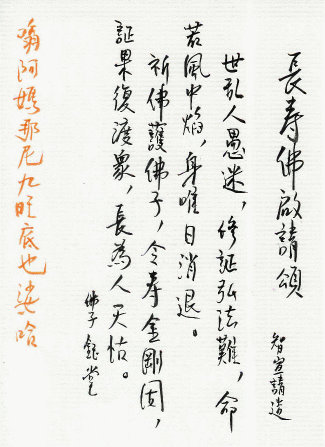 長寿佛啟請頌
智宣請造
世亂人愚迷，修証弘法難，命
若風中焰，身唯日消退。
祈佛護佛子，令寿金剛固，
証果復渡眾，長為人天怙。
佛子
嗡阿媽那尼九旺底也娑哈